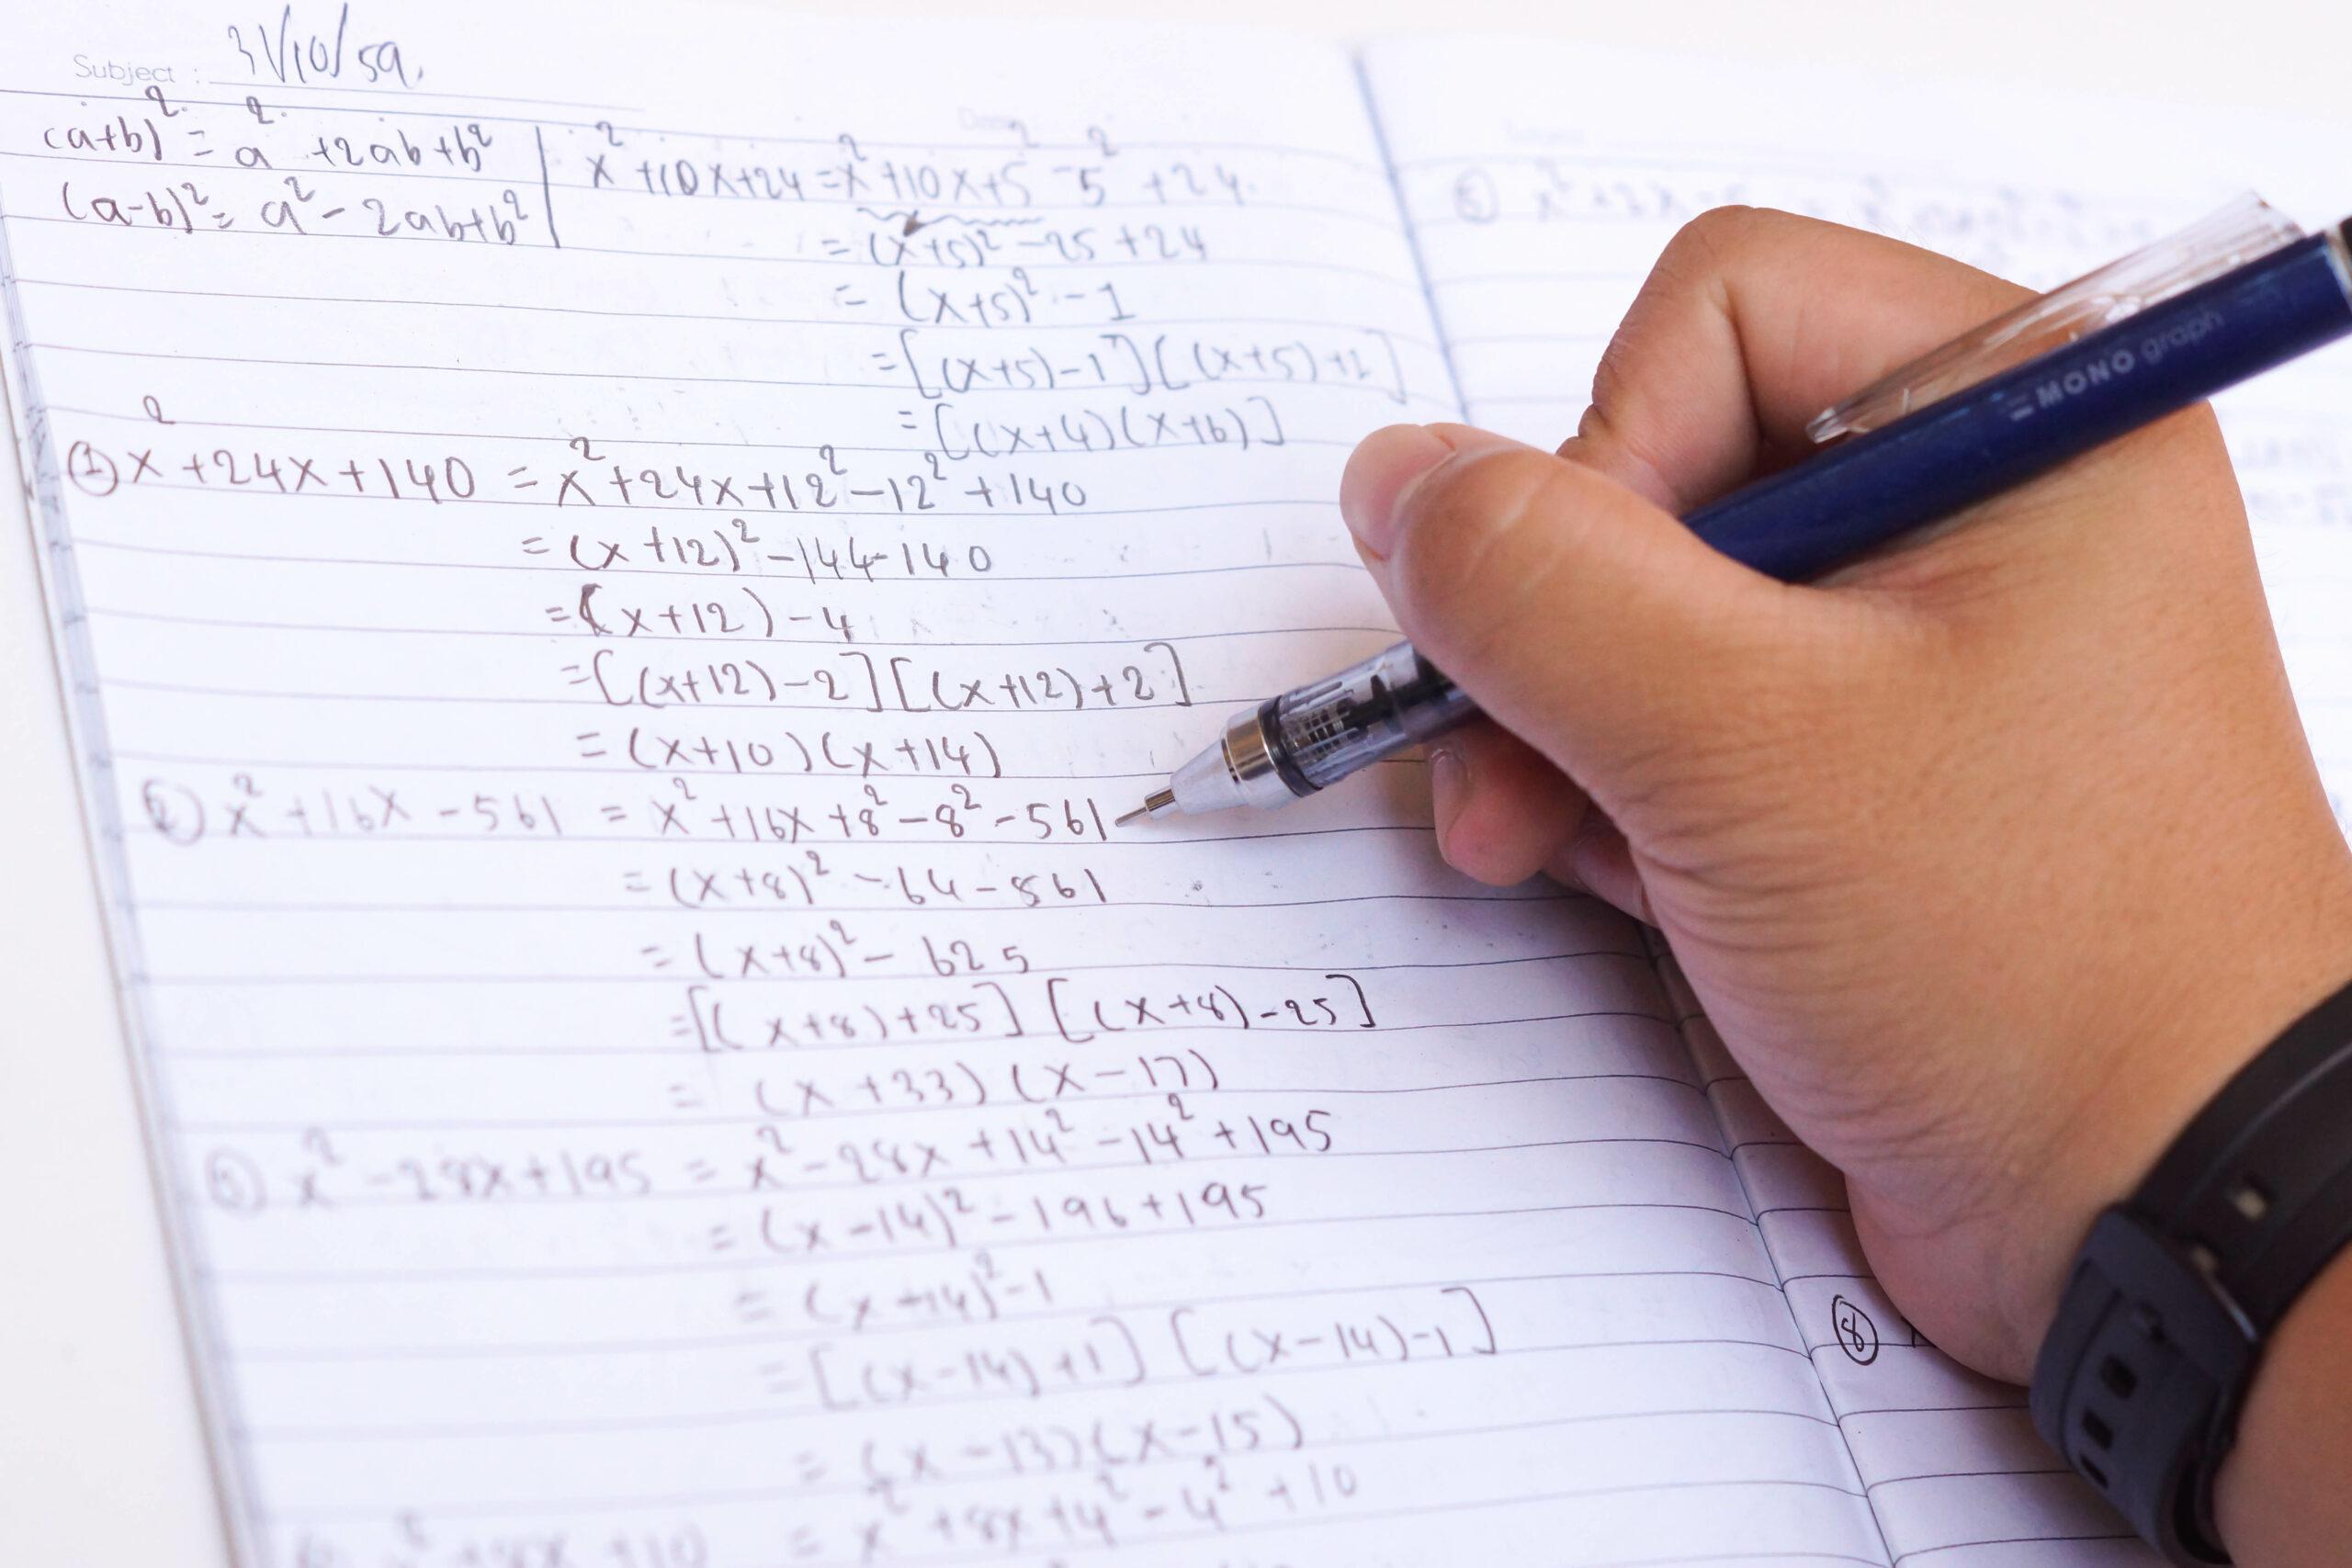 Subject : 31/10/59.
(a+b)² = a² +2ab+b²
(a-b)² = a² - 2ab+b²
x² +10x+24 = x² +10x+5² -5² +24.
= (x+5)² -25 +24
= (x+5)² - 1
= [(x+5)-1] [(x+5)+1]
= [(x+4)(x+6)]
① x² +24x+140 = x² +24x+12² -12² +140
= (x+12)² -144-140
= (x+12) - 4
= [(x+12)-2] [(x+12)+2]
= (x+10)(x+14)
② x² +16x -561 = x² +16x +8² -8² -561
= (x+8)² -64 -561
= (x+8)² - 625
= [(x+8)+25] [(x+8)-25]
= (x+33)(x-17)
③ x² -28x+195 = x² -28x +14² -14² +195
= (x-14)² -196+195
= (x+14)² -1
= [(x-14)+1] [(x-14)-1]
= (x-13)(x-15)
x² +8x +10 = x² +8x+4² -4² +10
⑧
MONO graph